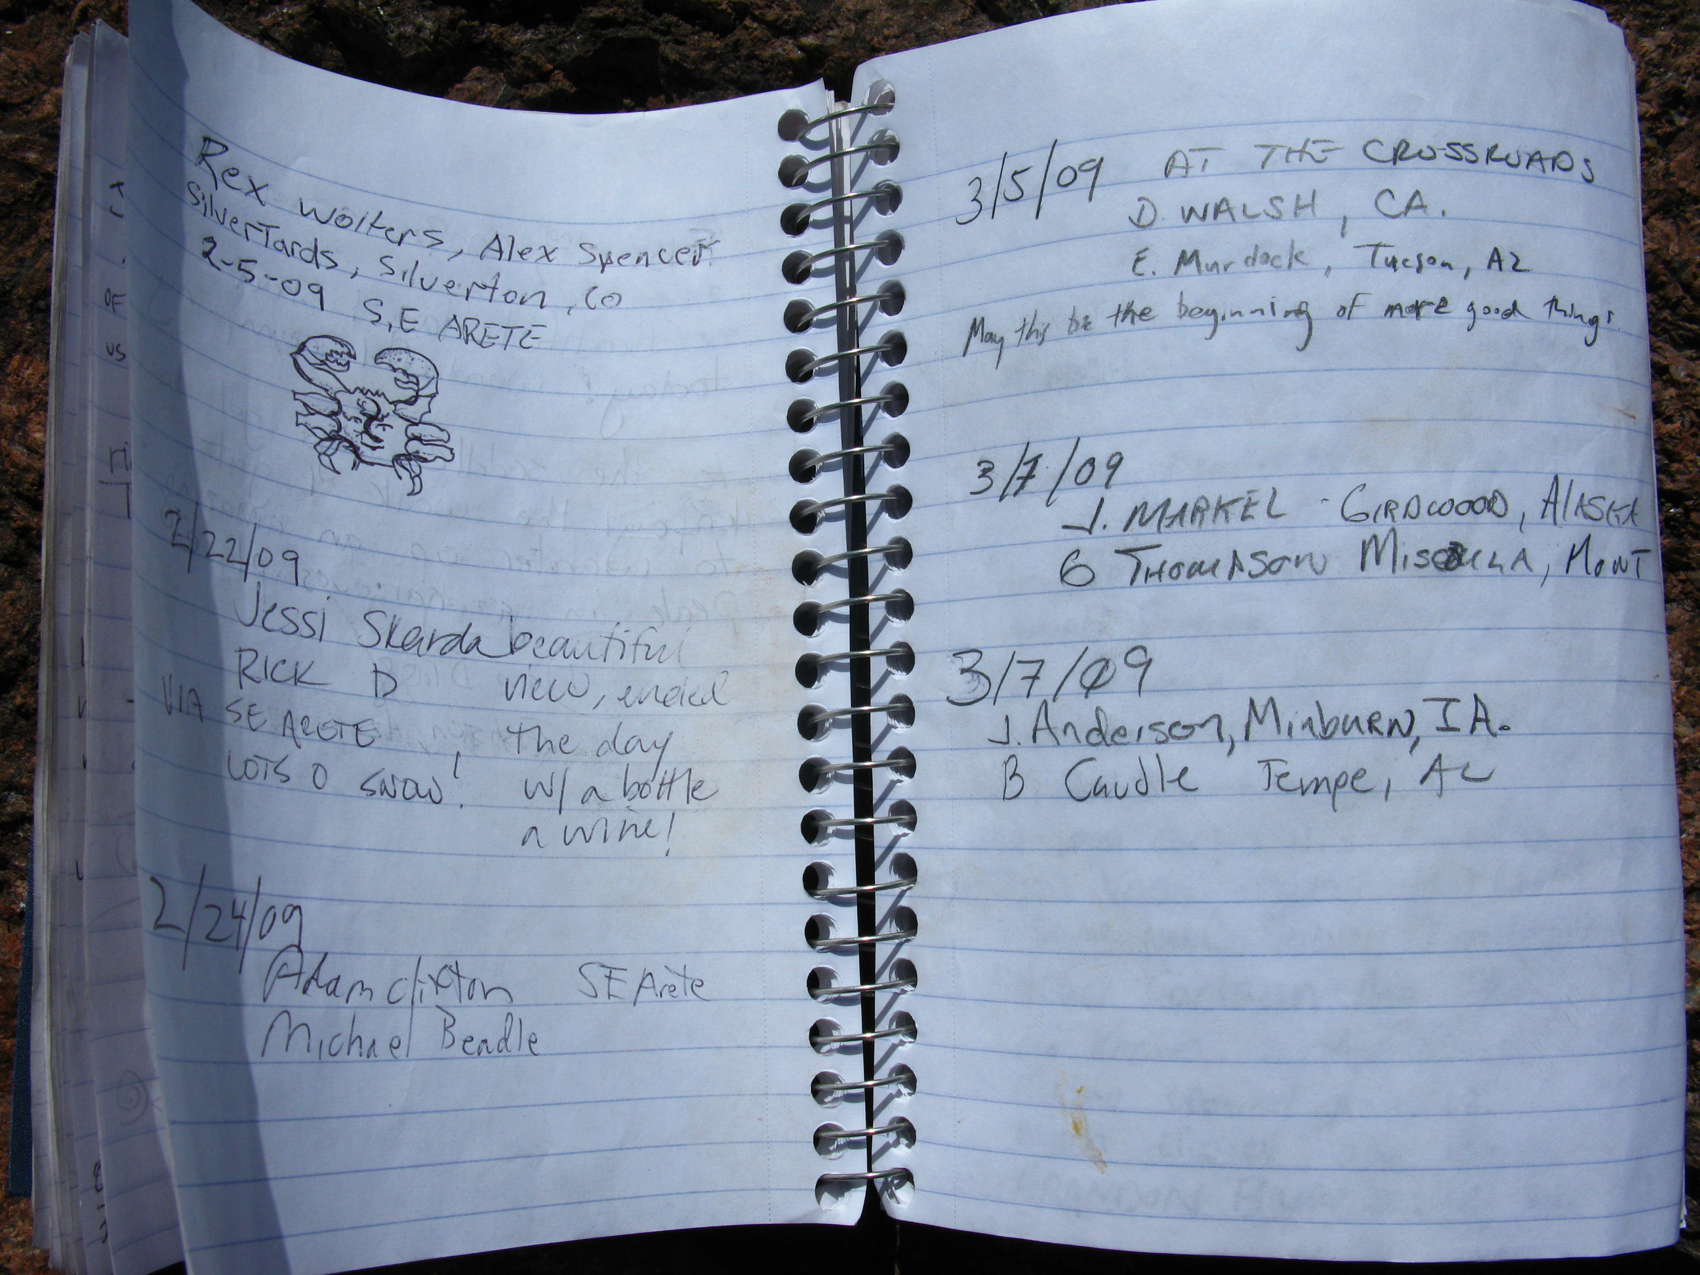 Rex Wolters, Alex Spencer
SilverTards, Silverton, CO
2-5-09 S,E ARETE
2/22/09
Jessi Skarda beautiful
RICK D view, ended
VIA SE ARETE the day
LOTS O SNOW! w/ a bottle
a wine!
2/24/09
Adam clifton SE Arete
Michael Beadle
3/5/09 AT THE CROSSROADS
D. WALSH, CA.
E. Murdock, Tucson, AZ
May this be the beginning of more good things
3/7/09
J. MARKEL - GIRDWOOD, ALASKA
G THOMPSON MISOULA, MONT
3/7/09
J. Anderson, Minburn, IA.
B Caudle Tempe, AZ
OF
US